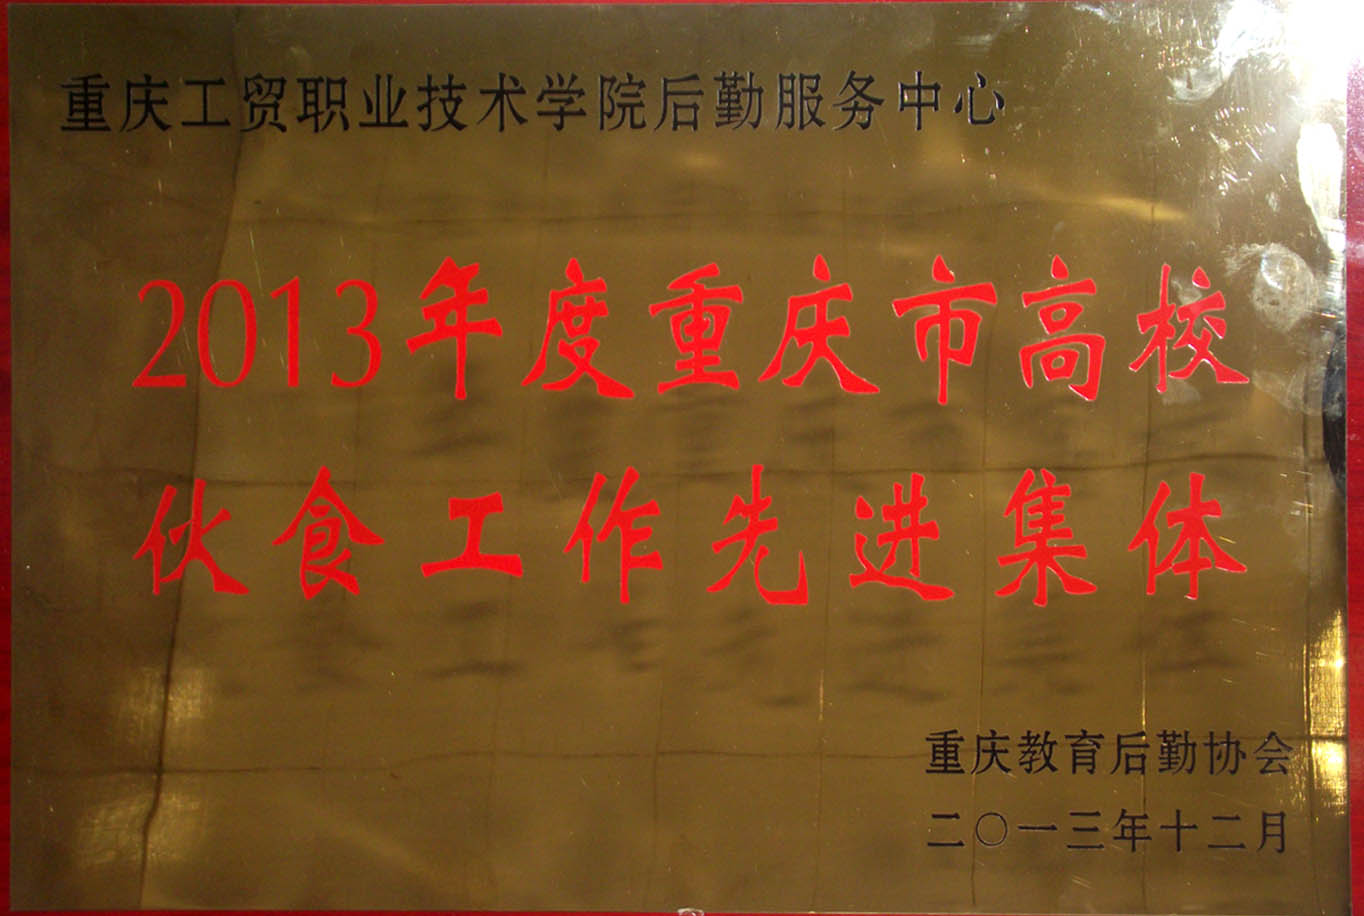 重庆工贸职业技术学院后勤服务中心
2013年度重庆市高校
伙食工作先进集体
重庆教育后勤协会
二〇一三年十二月